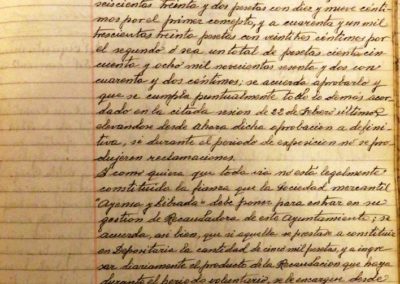 seiscientas treinta y dos pesetas con diez y nueve cénti-
mos por el primer concepto, y a cuarenta y un mil
trescientas treinta pesetas con veintitres céntimos por
el segundo ó sea un total de pesetas ciento cin
cuenta y ocho mil novecientas sesenta y dos con
cuarenta y dos céntimos; se acuerda aprobarlo y
que se cumpla puntualmente todo lo demás acor
dado en la citada sesion de 22 de Febrero último
elevandose desde ahora dicha aprobacion a defini-
tiva, si durante el periodo de exposicion no se pro
dujeren reclamaciones.
Y como quiera que toda via no está legalmente
constituida la fianza que la Sociedad mercantil
"Ayensa y Librada" debe poner para entrar en su
gestion de Recaudadora de este Ayuntamiento; se
acuerda, asi bien, que si aquella se prestase a constituir
en Depositaria la cantidad de cinco mil pesetas, y a ingre
sar diariamente el producto de la Recaudacion que haga
durante el periodo voluntario, se le encargue desde